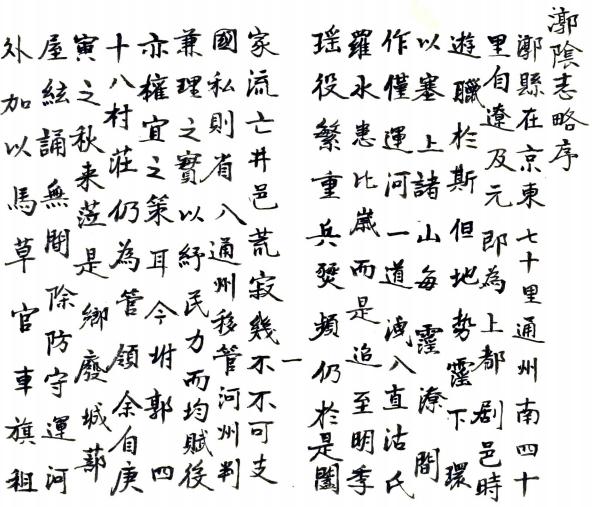 漷陰志略序
漷縣在京東七十里通州南四十
里自遼及元即為上都劇邑時
遊臘於斯但地勢窪下環
以塞上諸山每霪潦間
作僅運河一道洩入直沽氏
羅水患比歲而是追至明季
瑶役繁重兵燹頻仍於是闔
一
家流亡井邑荒寂幾不不可支
國私則省入通州移管河州判
兼理之實以紓民力而均賦役
亦權宜之策耳今坿郭四
十八村莊仍為管領余自庚
寅之秋来蒞是鄉廢城蔀
屋絃誦無聞除防守運河
外加以馬草官車旗租